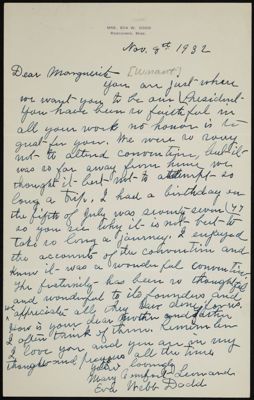 MRS. EVA W. DODD
Nov. 9th 1932
Dear Marguerite [Winant]
You are just where
we want you to be our President
You have been so faithful in
all your work no honor is to
great for you. We were so sorry
not to attend convention, but it
was so far away from home we
thought it best not to attempt so
long a trip, I had a birthday on
the fifth of July was seventy seven (77
so you see why it is not best to
take so long a journey. I enjoyed
the accounts of the convention and
know it was a wonderful convention
The fraternity has been so thoughtful
and wonderful to its Founders and
we appreciate all they have done for us.
How is your dear Mother and father
I often think of them. Remember
I love you and you are in my
thoughts and prayers all the time
your loving
Mary Comfort Leonard
Eva Webb Dodd